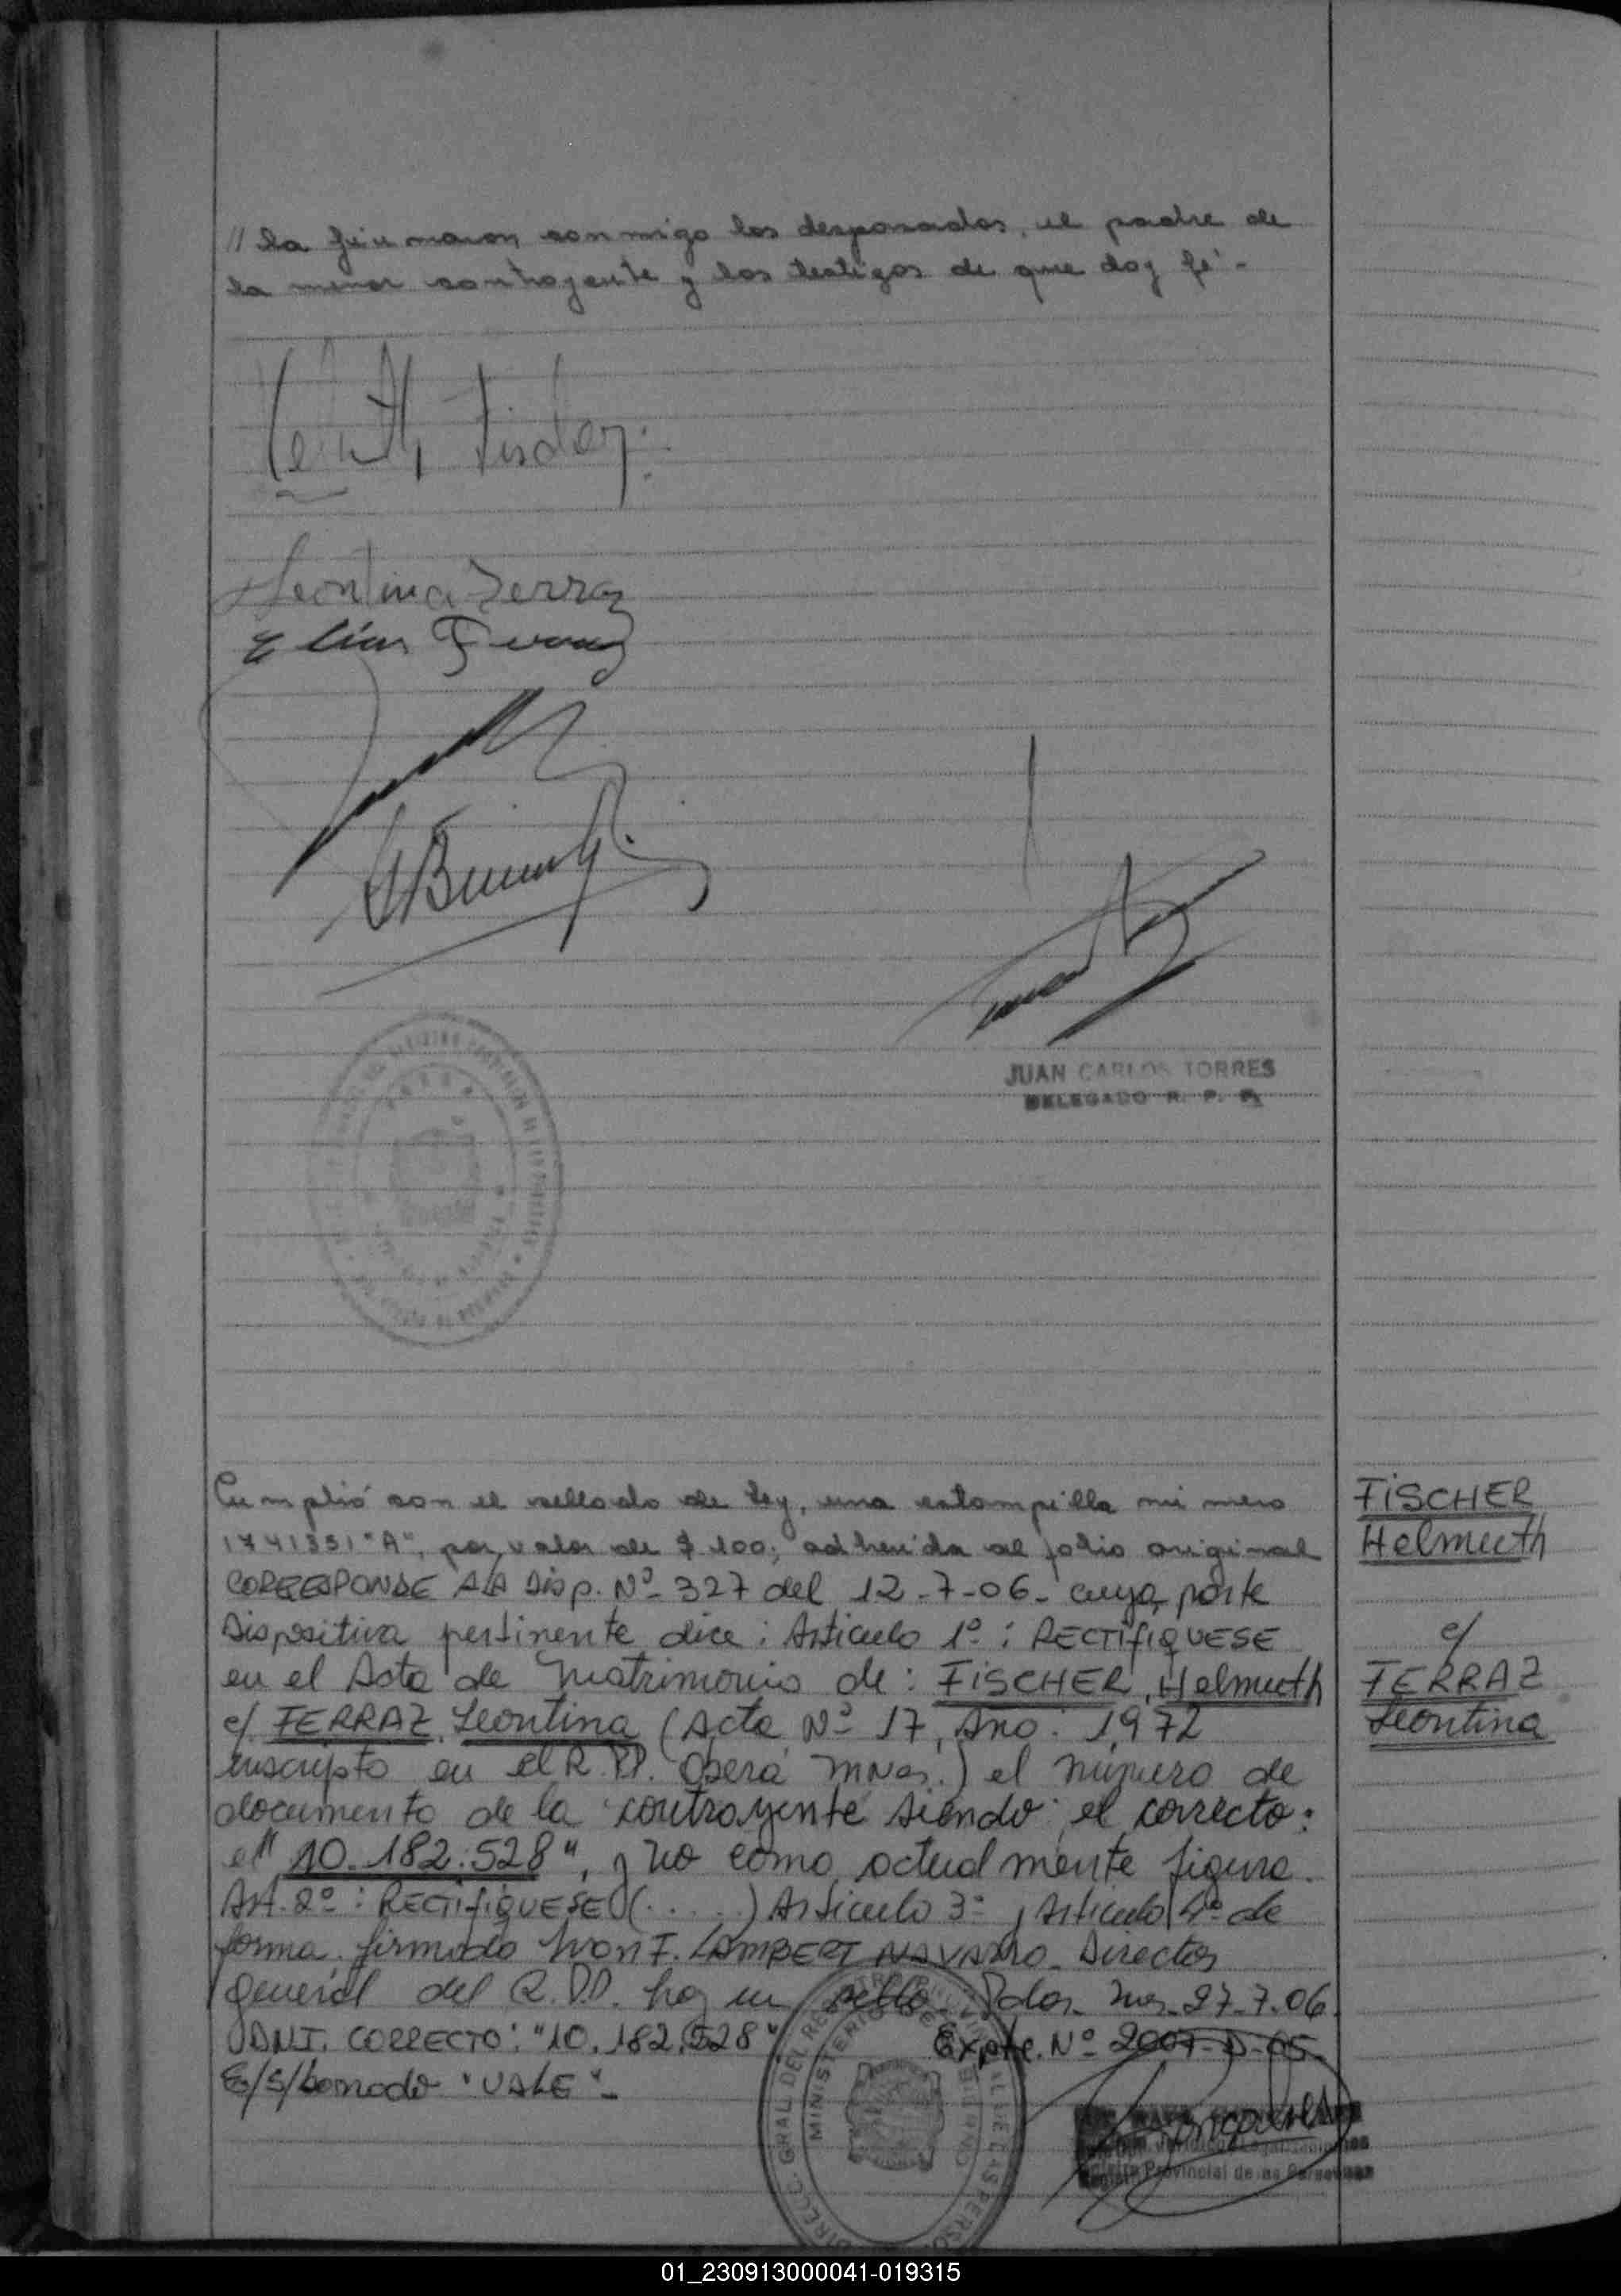 // la firmaron conmigo los desposados, el padre de
la menor contrayente y los testigos de que doy fé.-
Fischer
Leontina Ferraz
Elias Ferraz
JUAN CARLOS TORRES
DELEGADO R. P. P.
Cumplió con el sellado de ley, una estampilla número
1741331 "A", por valor de $ 100; adherida al folio original
CORRESPONDE A LA Disp. Nº 327 del 12-7-06- cuya parte
Dispositiva pertinente dice: Articulo 1º: RECTIFIQUESE
en el Acta de Matrimonio de: FISCHER, Helmuth
c/ FERRAZ, Leontina (Acta Nº 17, Año: 1972
inscripto en el R.P.P. Oberá Mnes.) el número de
documento de la contrayente siendo el correcto:
el "10.182.528", y no como actualmente figura.
Art. 2º: RECTIFIQUESE (.....) Articulo 3º y Articulo 4º de
forma. firmado Ivon F. LAMBERT NAVARRO- Director
general del R.P.P. hay un sello- Pdas- Mnes- 27-7-06.
D.N.I. CORRECTO: "10.182.528" Expte. Nº 2007-D-05-
E/S/borrado "VALE"-
FISCHER
Helmuth
c/
FERRAZ
Leontina
DIRECC. GRAL. DEL REGISTRO PROVINCIAL DE LAS PERSO
MINISTERIO DE GOBIERNO
Provincial de las Personas
01_230913000041-019315